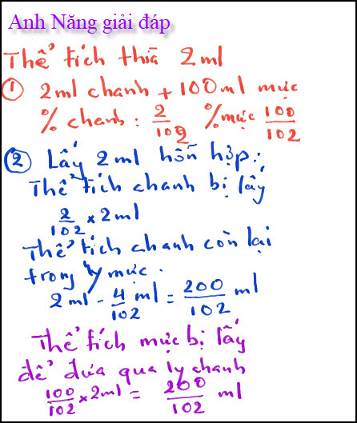 Anh Năng giải đáp
Thể tích thìa 2ml
① 2ml chanh + 100ml mực
% chanh : 2/102 % mực 100/102
② Lấy 2ml hỗn hợp :
Thể tích chanh bị lấy
2/102 x 2ml
Thể tích chanh còn lại
trong ly mực .
2ml - 4/102 ml = 200/102 ml
Thể tích mực bị lấy
để đưa qua ly chanh
100/102 x 2ml = 200/102 ml